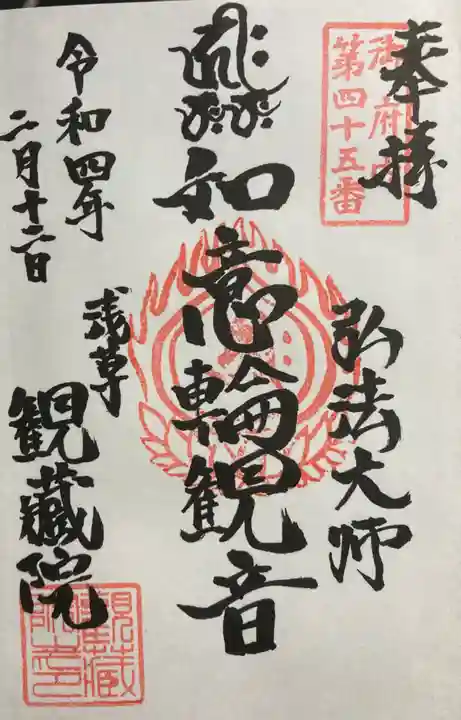 奉拝
御府内
第四十五番
弘法大師
如意輪観音
令和四年
二月十二日
浅草
観蔵院